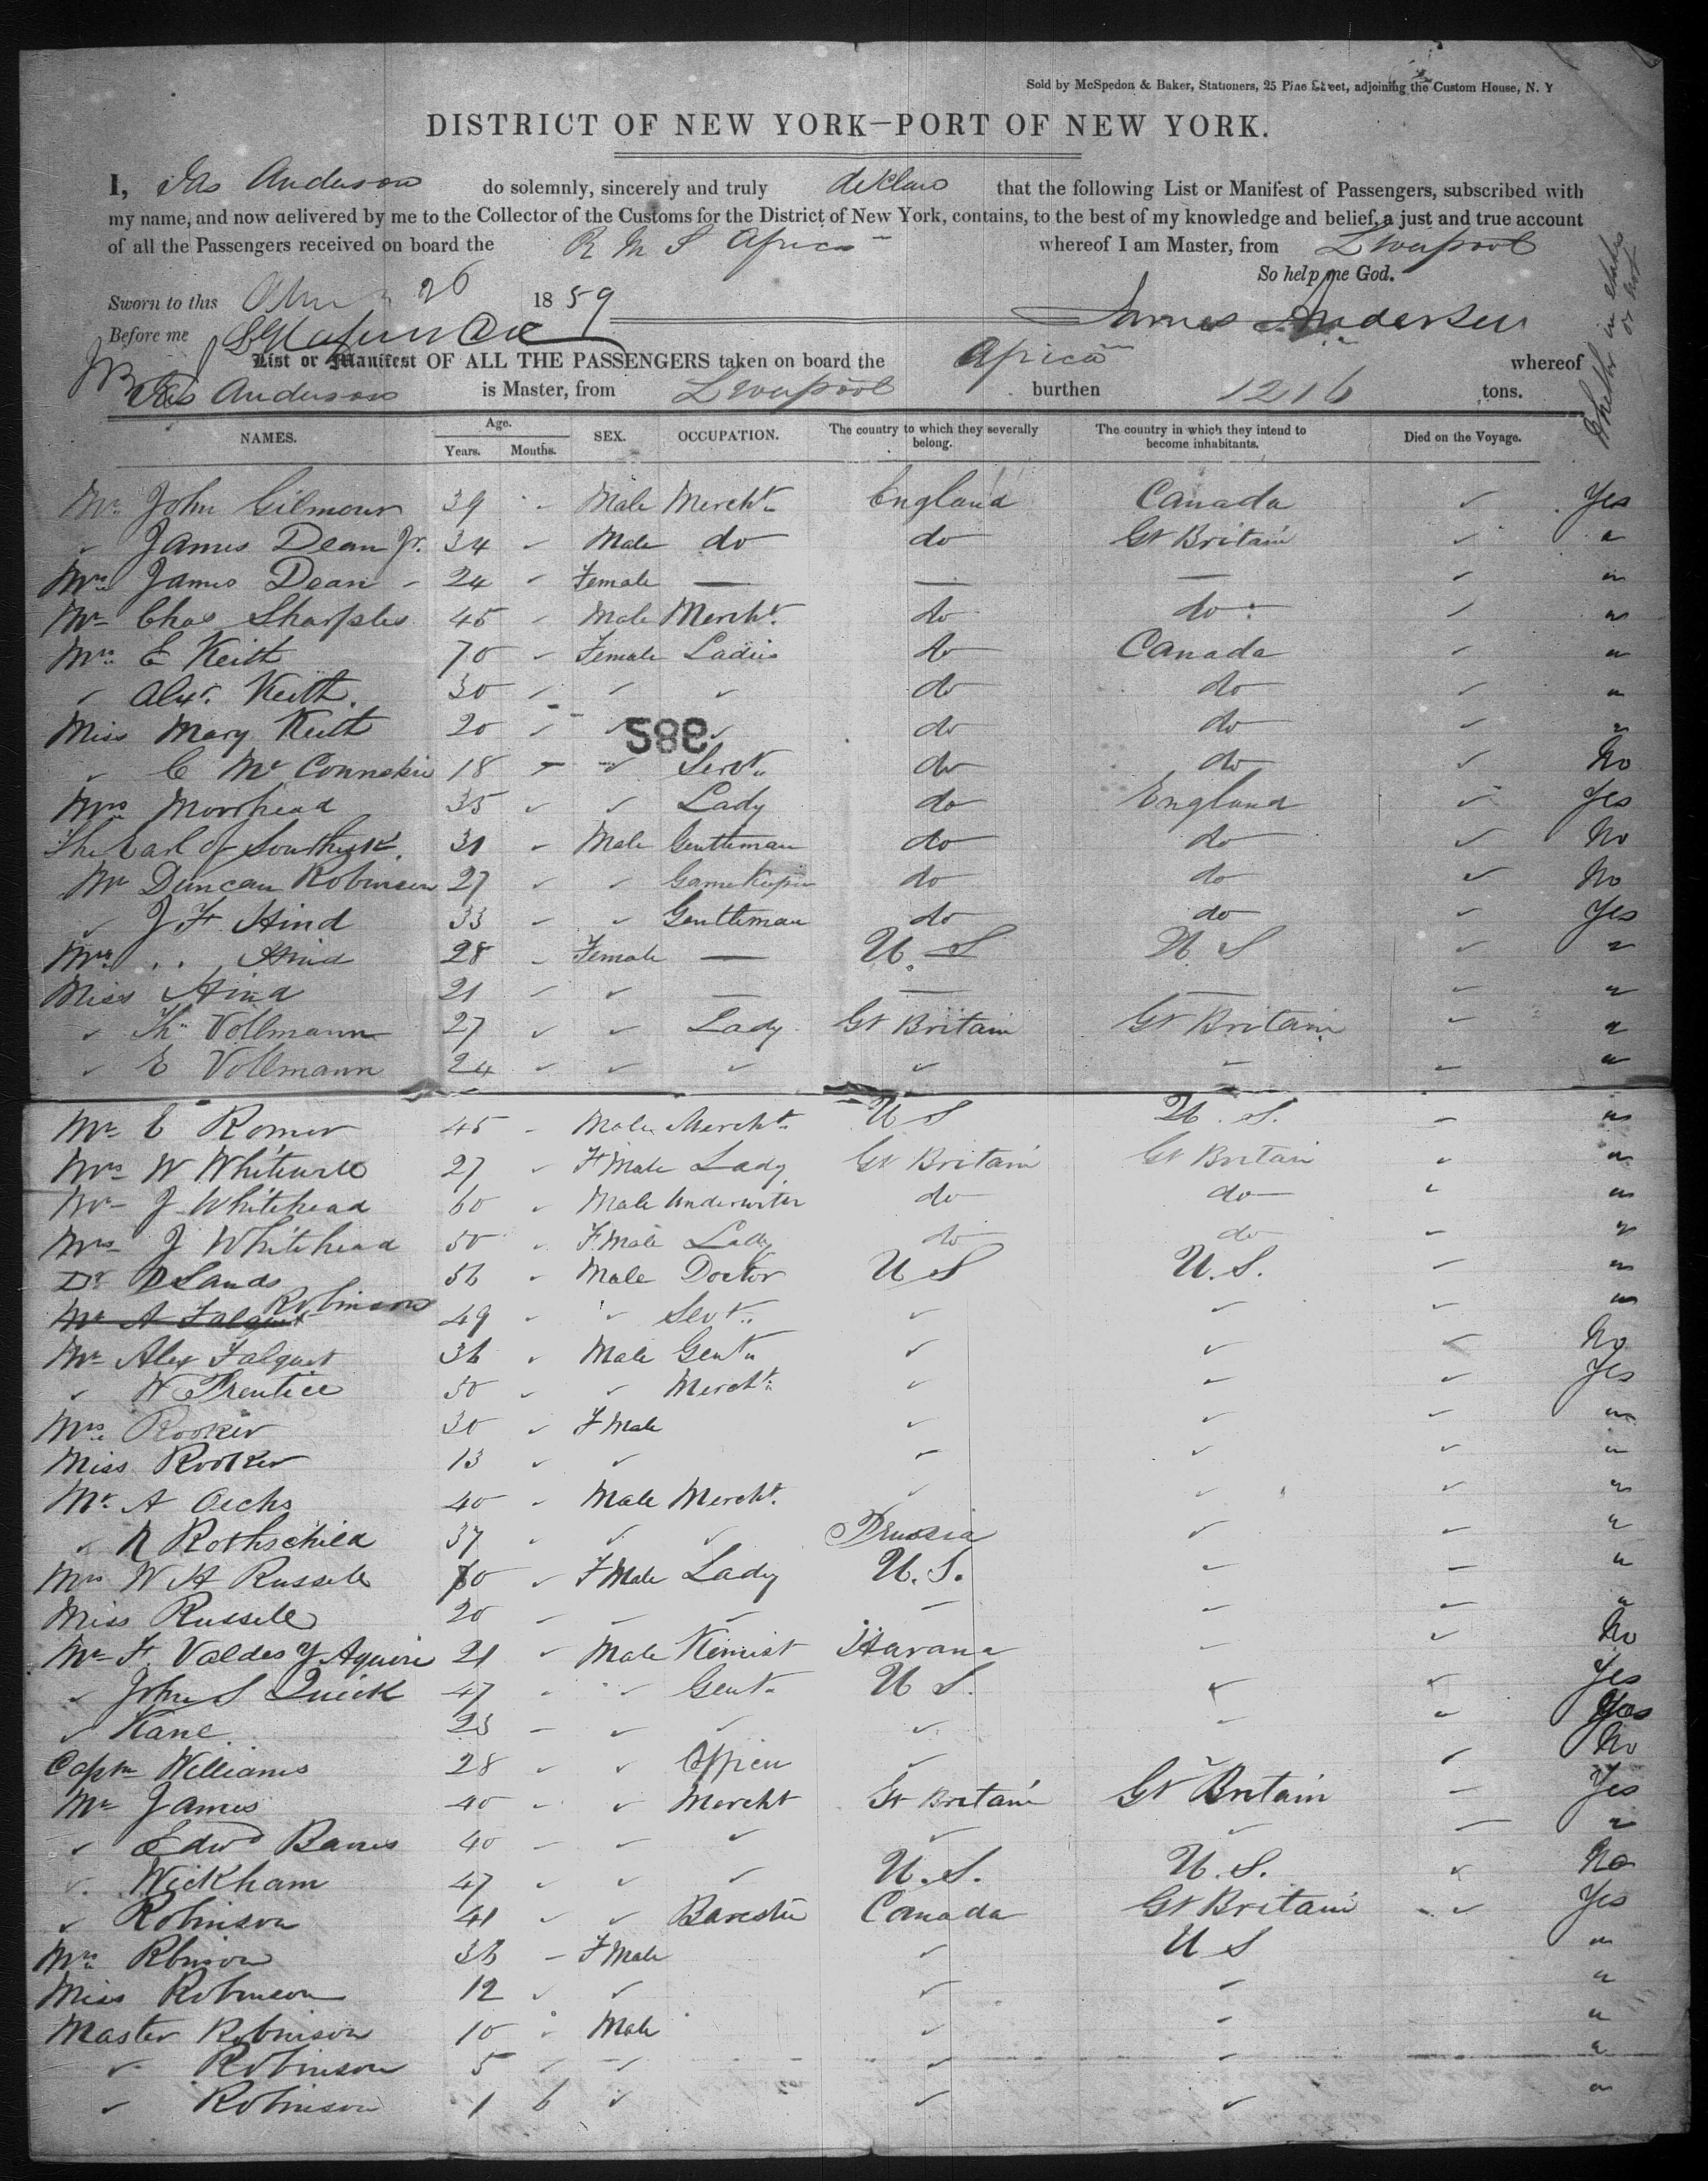 Sold by McSpedon & Baker, Stationers, 25 Pine Street, adjoining the Custom House, N. Y
DISTRICT OF NEW YORK—PORT OF NEW YORK.
I, Jas Anderson do solemnly, sincerely and truly declare that the following List or Manifest of Passengers, subscribed with
my name, and now delivered by me to the Collector of the Customs for the District of New York, contains, to the best of my knowledge and belief, a just and true account
of all the Passengers received on board the R M S Africa whereof I am Master, from Liverpool
So help me God.
Sworn to this 26 1859
Before me
James Anderson
List or Manifest OF ALL THE PASSENGERS taken on board the Africa whereof
Jas Anderson is Master, from Liverpool burthen 1216 tons.
Whether in states or not
NAMES. Age. Years. Months. SEX. OCCUPATION. The country to which they severally belong. The country in which they intend to become inhabitants. Died on the Voyage.
Mr. John Gilmour 39 - Male Mercht. England Canada ✓ Yes
✓ James Dean Jr. 34 ✓ Male do do Gt Britain ✓ "
Mrs. James Dean - 24 - Female — — — ✓ "
Mr Chas Sharples 45 - Male Mercht. do do ✓ "
Mrs. E Keith 70 - Female Ladies do Canada ✓ "
✓ Alexr. Keith. 30 ✓ ✓ ✓ do do ✓ "
Miss Mary Keith 20 ✓ ✓ ✓ do do ✓ "
589
✓ C Mc 18 - ✓ Servt. do do ✓ No
Mrs Moorhead 35 ✓ ✓ Lady do England ✓ Yes
The Earl of Southesk. 31 - Male Gentleman do do ✓ No
Mr Duncan Robinson 27 ✓ ✓ Gamekeeper do do ✓ No
✓ J F Hind 33 - ✓ Gentleman do do ✓ Yes
Mrs. " Hind 28 - Female — U.S U S ✓ "
Miss Hind 21 - ✓ — — — ✓ "
✓ Th. Vollmann 27 ✓ ✓ Lady Gt Britain Gt Britain ✓ "
✓ E Vollmann 24 ✓ ✓ ✓ ✓ ✓ ✓ "
Mr E Romer 45 - Male Mercht. U S U. S. - "
Mrs W Whitewell 27 ✓ F Male Lady Gt Britain Gt Britain ✓ "
Mr J Whitehead 60 ✓ Male Underwriter do do ✓ "
Mrs J Whitehead 50 ✓ F. Male Lady do do - "
Dr D Sands 56 - Male Doctor U S U.S. - "
Mr A Falquet Robinson 49 - " Servt. ✓ ✓ ✓ "
Mr Alex Falquet 36 ✓ Male Gent. ✓ ✓ ✓ No
✓ W Prentice 50 ✓ ✓ Mercht. ✓ ✓ ✓ Yes
Mrs. Rooker 30 ✓ F Male ✓ ✓ ✓ "
Miss Rooker 13 ✓ ✓ ✓ ✓ ✓ "
Mr. A Oechs 40 - Male Mercht. ✓ ✓ ✓ "
✓ N Rothschild 37 ✓ ✓ ✓ Prussia ✓ ✓ "
Mrs W H Russell 80 ✓ F Male Lady U.S. ✓ - "
Miss Russell 20 - - - - - ✓ "
Mr F. Valdes Y Aguire 21 ✓ Male Kemist Havana ✓ ✓ No
✓ John S Quick 47 ✓ ✓ Gent. U S. ✓ ✓ Yes
✓ Kane 23 - ✓ ✓ ✓ ✓ ✓ Yes
Captn Williams 28 ✓ ✓ Officer ✓ ✓ ✓ No
Mr James 40 - ✓ Mercht Gt Britain Gt Britain - Yes
✓ Edwd Barnes 40 - ✓ ✓ ✓ ✓ - "
✓ Wickham 47 ✓ ✓ ✓ U.S. U.S. ✓ No
✓ Robinson 41 ✓ ✓ Canada Gt Britain ✓ Yes
Mrs. Rbinson 36 - F Male ✓ U S "
Miss Robinson 12 ✓ ✓ ✓ ✓ "
Master Robinson 10 ✓ Male ✓ ✓ "
✓ Robinson 5 ✓ ✓ ✓ ✓ "
✓ Robinson 1 6 ✓ ✓ ✓ "